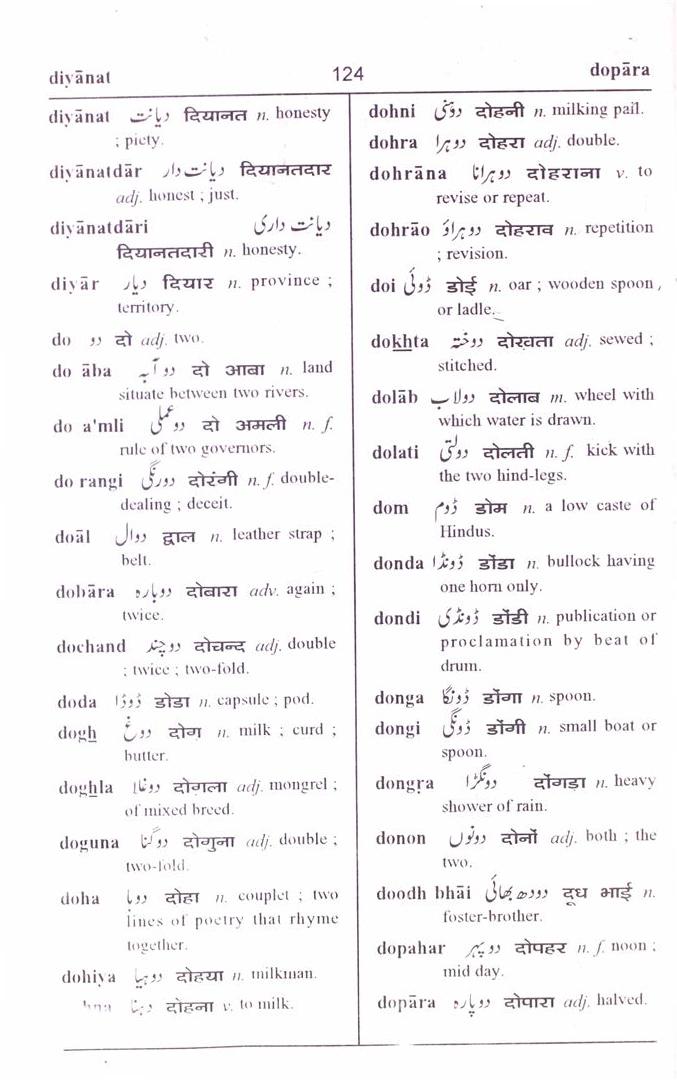 diyānat
124
dopāra
diyānat دیانت दियानत n. honesty
; piety.
diyānatdār دیانت دار दियानतदार
adj. honest ; just.
diyānatdāri دیانت داری
दियानतदारी n. honesty.
diyār دیار दियार n. province ;
territory.
do دو दो adj. two.
do āba دو آبہ दो आबा n. land
situate between two rivers.
do a'mli دو عملی दो अमली n. f.
rule of two governors.
do rangi دورنگی दोरंगी n. f. double-
dealing ; deceit.
doāl دوال द्वाल n. leather strap ;
belt.
dobāra دوبارہ दोबारा adv. again ;
twice.
dochand دوچند दोचन्द adj. double
; twice ; two-fold.
doda ڈوڈا डोडा n. capsule ; pod.
dogh دوغ दोग n. milk ; curd ;
butter.
doghla دوغلا दोगला adj. mongrel ;
of mixed breed.
doguna دوگنا दोगुना adj. double ;
two-fold.
doha دوہا दोहा n. couplet ; two
lines of poetry that rhyme
together.
dohiya دوہیا दोहया n. milkman.
hna دہنا दोहना v. to milk.
dohni دوہنی दोहनी n. milking pail.
dohra دوہرا दोहरा adj. double.
dohrāna دوہرانا दोहराना v. to
revise or repeat.
dohrāo دوہراؤ दोहराव n. repetition
; revision.
doi ڈوئی डोई n. oar ; wooden spoon,
or ladle.
dokhta دوختہ दोख़ता adj. sewed ;
stitched.
dolāb دولاب दोलाब m. wheel with
which water is drawn.
dolati دولتی दोलती n. f. kick with
the two hind-legs.
dom ڈوم डोम n. a low caste of
Hindus.
donda ڈونڈا डोंडा n. bullock having
one horn only.
dondi ڈونڈی डोंडी n. publication or
proclamation by beat of
drum.
donga ڈونگا डोंगा n. spoon.
dongi ڈونگی डोंगी n. small boat or
spoon.
dongra دونگڑا दोंगड़ा n. heavy
shower of rain.
donon دونوں दोनों adj. both ; the
two.
doodh bhāi دودھ بھائی दूध भाई n.
foster-brother.
dopahar دوپہر दोपहर n. f. noon ;
mid day.
dopāra دوپارہ दोपारा adj. halved.